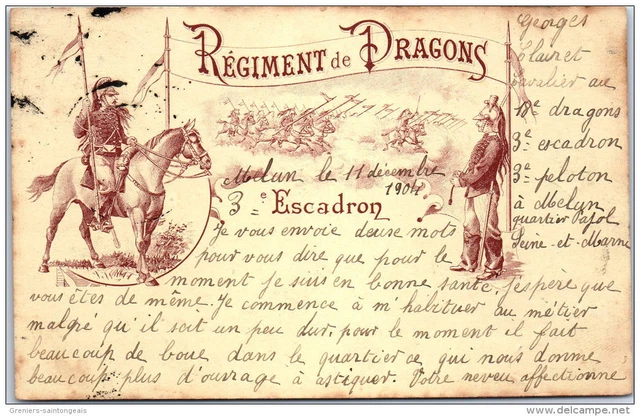 RÉGIMENT de DRAGONS
Georges
Clairet
cavalier au
18e dragons
3e escadron
3e peloton
à Melun
quartier Pajol
Seine-et-Marne
Melun le 11 décembre
1904
3e Escadron
Je vous envoie deuse mots
pour vous dire que pour le
moment je suis en bonne santé, j'éspère que
vous êtes de même. Je commence à m'habituer au métier
malgré qu'il soit un peu dur, pour le moment il fait
beaucoup de boue dans le quartier ce qui nous donne
beaucoup plus d'ouvrage à astiquer. Votre neveu affectionné
Greniers-saintongeais
© delcampe.net